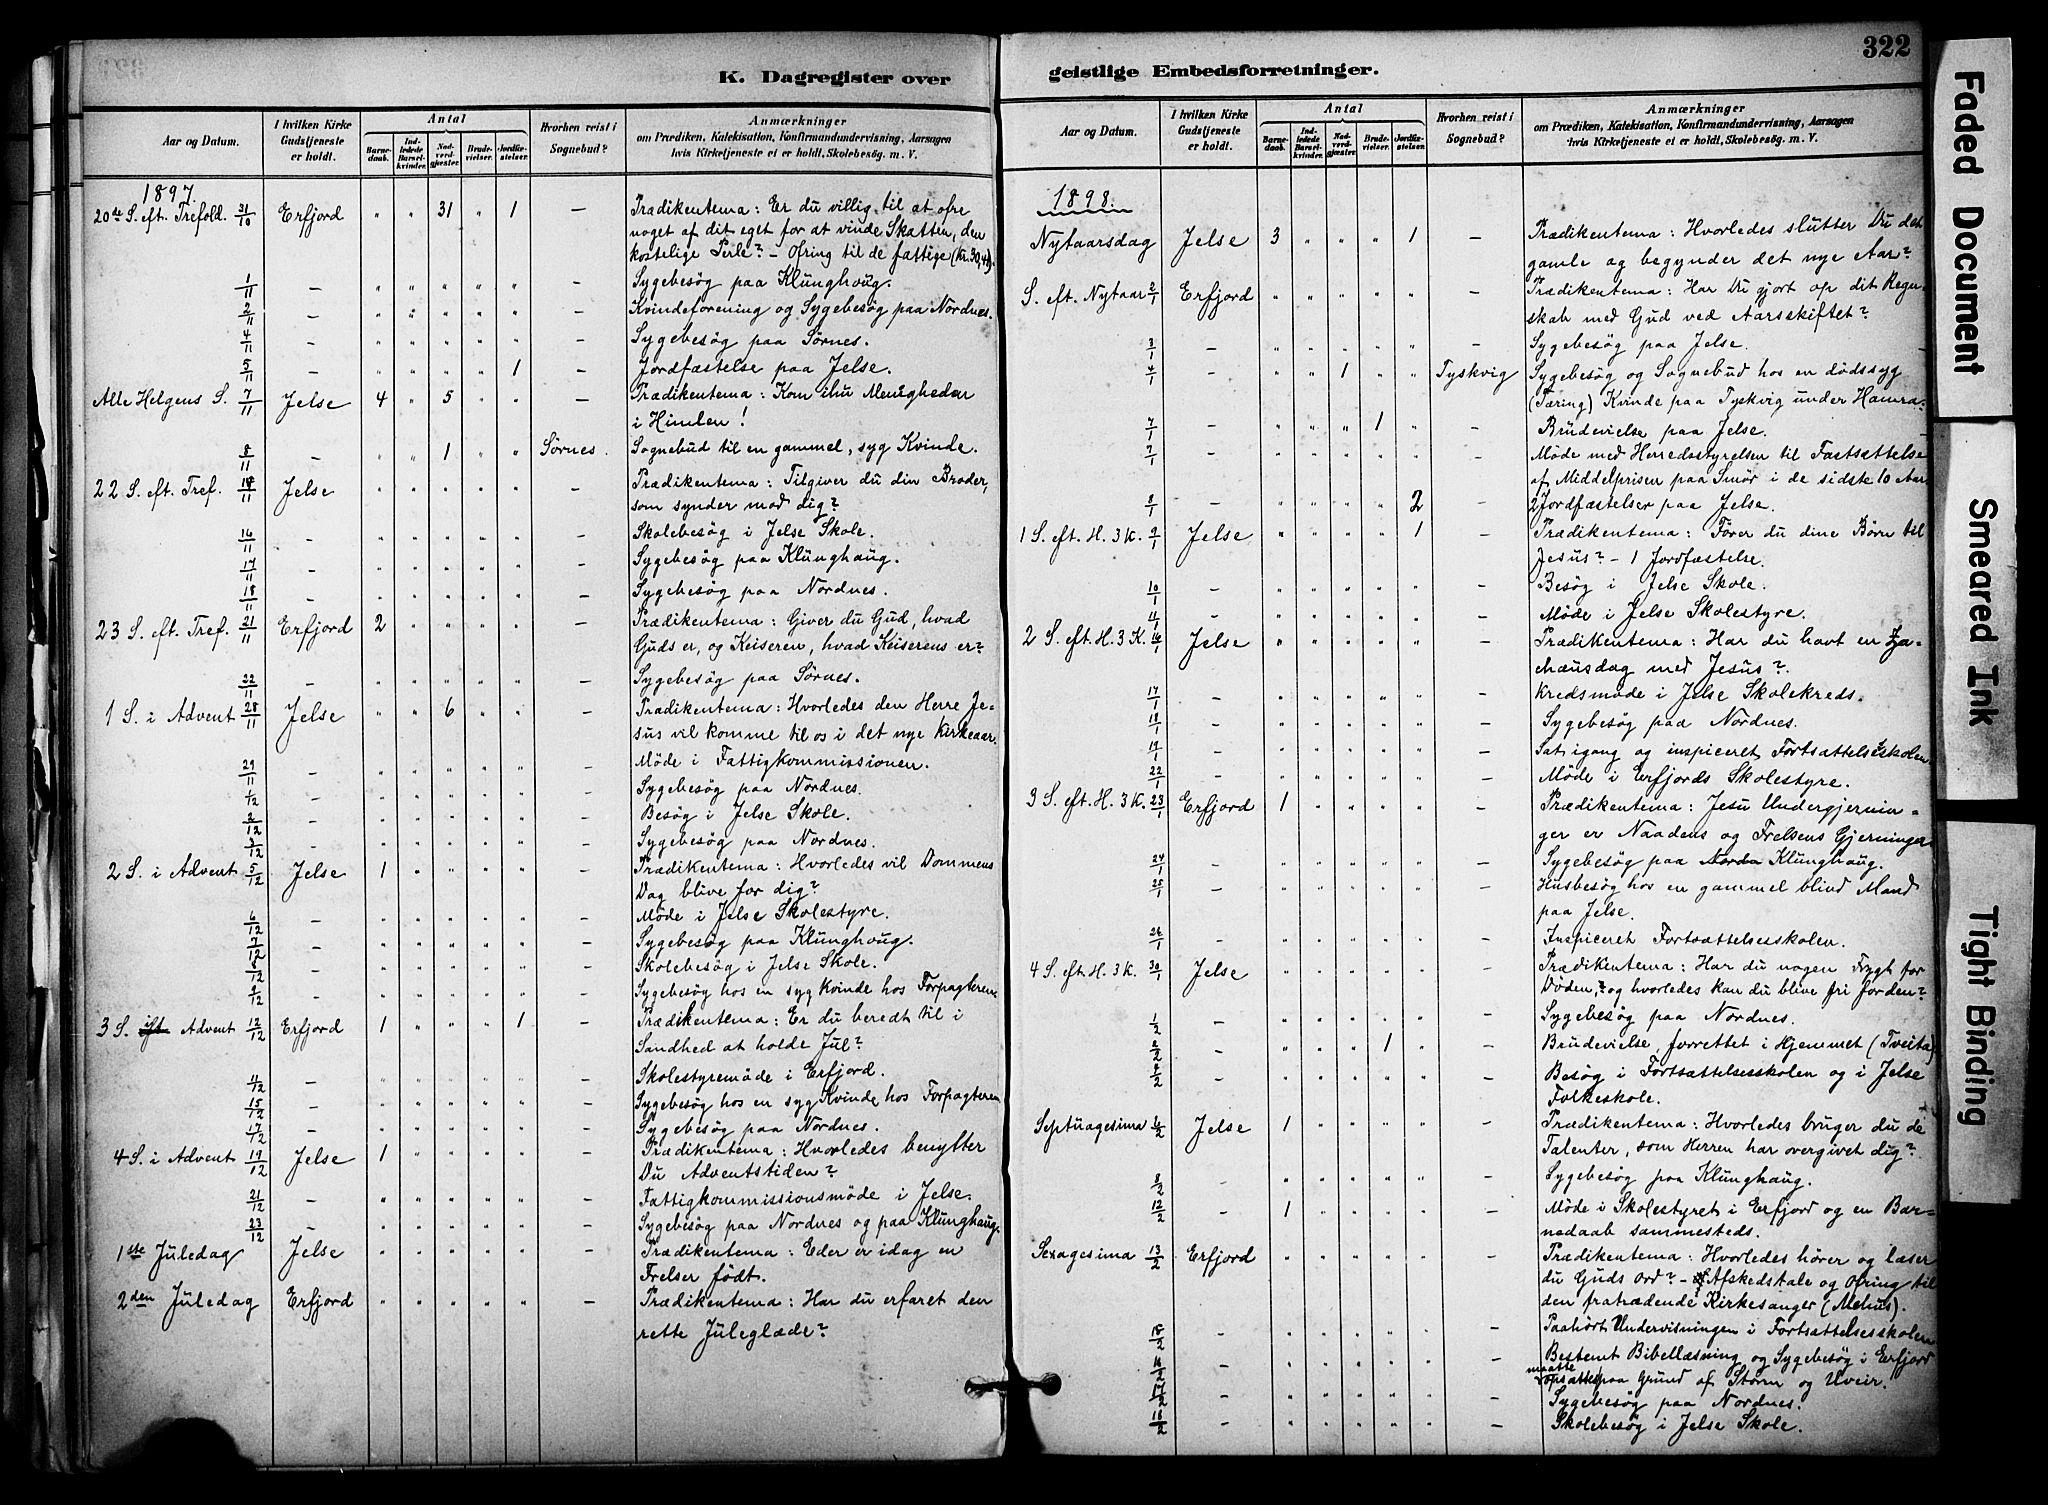 322
K. Dagregister over
Aar og Datum.
I hvilken Kirke Gudstjeneste er holdt.
Antal
Barnedaab.
Indledede Barselkvinder.
Nadverdgjester.
Brudevielser.
Jordfæstelser.
Hvorhen reist i Sognebud?
Anmærkninger
om Prædiken, Katekisation, Konfirmandundervisning, Aarsagen
hvis Kirketjeneste ei er holdt, Skolebesög. m. V.
1897.
20de S. eft. Trefold. 31/10 Erfjord " " 31 " 1 — Prædikentema: Er du villig til at ofre
noget af dit eget for at vinde Skatten, den
kostelige Perle? – Ofring til de fattige (Kr. 30,41).
1/11 — " " " " " — Sygebesøg paa Klunghoug.
2/11 — " " " " " — Kvindeforening og Sygebesøg paa Nordnes.
4/11 — " " " " " — Sygebesøg paa Sørnes.
5/11 — " " " " 1 — Jordfæstelse paa Jelse.
Alle Helgens S. 7/11 Jelse 4 " 5 " " — Prædikentema: Kom ihu Menigheden
i Himlen!
8/11 — " " 1 " " Sørnes. Sognebud til en gammel, syg Kvinde.
22 S. eft. Tref. 14/11 Jelse " " " " " — Prædikentema: Tilgiver du din Broder,
som synder mod dig?
16/11 — " " " " " — Skolebesøg i Jelse Skole.
17/11 — " " " " " — Sygebesøg paa Klunghaug.
18/11 — " " " " " — Sygebesøg paa Nordnes.
23 S. eft. Tref. 21/11 Erfjord 2 " " " " — Prædikentema: Giver du Gud, hvad
Guds er, og Keiseren, hvad Keiserens er?
22/11 — " " " " " — Sygebesøg paa Sørnes.
1 S. i Advent 28/11 Jelse " " 6 " " — Prædikentema: Hvorledes den Herre Je-
sus vil komme til os i det nye Kirkeaar.
29/11 — " " " " " — Møde i Fattigkommissionen.
1/12 — " " " " " — Sygebesøg paa Nordnes.
2/12 — " " " " " — Besøg i Jelse Skole.
3/12 — " " " " " — Sygebesøg paa Nordnes.
2 S. i Advent 5/12 Jelse 1 " " " " — Prædikentema: Hvorledes vil Dommens
Dag blive for dig?
6/12 — " " " " " — Møde i Jelse Skolestyre.
7/12 — " " " " " — Sygebesøg paa Klunghoug.
8/12 — " " " " " — Skolebesøg i Jelse Skole.
9/12 — " " " " " — Sygebesøg hos en syg Kvinde hos Forpagteren
3 S. i Advent 12/12 Erfjord 1 " " " 1 — Prædikentema: Er du beredt til i
Sandhed at holde Jul?
11/12 — " " " " " — Skolestyremøde i Erfjord.
15/12 — " " " " " — Sygebesøg hos en syg Kvinde hos Forpagteren
17/12 — " " " " " — Sygebesøg paa Nordnes.
4 S. i Advent 19/12 Jelse 1 " " " " — Prædikentema: Hvorledes benytter
Du Adventstiden?
21/12 — " " " " " — Fattigkommissionsmøde i Jelse.
23/12 — " " " " " — Sygebesøg paa Nordnes og paa Klunghaug.
1ste Juledag Jelse " " " " " — Prædikentema: Eder er idag en
Frelser født.
2den Juledag Erfjord " " " " " — Prædikentema: Har du erfaret den
rette Juleglæde?
geistlige Embedsforretninger.
Aar og Datum.
I hvilken Kirke Gudstjeneste er holdt.
Antal
Barnedaab.
Indledede Barselkvinder.
Nadverdgjester.
Brudevielser.
Jordfæstelser.
Hvorhen reist i Sognebud?
Anmærkninger
om Prædiken, Katekisation, Konfirmandundervisning, Aarsagen
hvis Kirketjeneste ei er holdt, Skolebesög. m. V.
1898.
Nytaarsdag Jelse 3 " " " 1 — Prædikentema: Hvorledes slutter Du det
gamle og begynder det nye Aar?
S. eft. Nytaar 2/1 Erfjord " " " " " — Prædikentema: Har Du gjort op dit Regn-
skab med Gud ved Aarsskiftet?
3/1 — " " " " " — Sygebesøg paa Jelse.
4/1 — " " 1 " " Tyskvig Sygebesøg og Sognebud hos en dødssyg
(Tæring) Kvinde paa Tyskvig under Hamra-
7/1 — " " " 1 " — Brudevielse paa Jelse.
7/1 — " " " " " — Møde med Herredsstyrelsen til Fastsættelse
af Middelprisen paa Smør i de sidste 10 Aar.
8/1 — " " " " 2 — 2 Jordfæstelser paa Jelse.
1 S. eft. H. 3 K. 9/1 Jelse " " " " 1 — Prædikentema: Fører du dine Børn til
Jesus? – 1 Jordfæstelse.
10/1 — " " " " " — Besøg i Jelse Skole.
11/1 — " " " " " — Møde i Jelse Skolestyre.
2 S. eft. H. 3 K. 16/1 Jelse " " " " " — Prædikentema: Har du havt en Za-
chæusdag med Jesus?
17/1 — " " " " " — Kredsmøde i Jelse Skolekreds.
18/1 — " " " " " — Sygebesøg paa Nordnes.
19/1 — " " " " " — Sat igang og inspiceret Fortsættelsesskolen
22/1 — " " " " " — Møde i Erfjords Skolestyre.
3 S. eft. H. 3 K. 23/1 Erfjord 1 " " " " — Prædikentema: Jesu Undergjernin-
ger er Naadens og Frelsens Gjerninger
24/1 — " " " " " — Sygebesøg paa Klunghaug.
25/1 — " " " " " — Husbesøg hos en gammel blind Mand
paa Jelse.
26/1 — " " " " " — Inspiceret Fortsættelsesskolen.
4 S. eft. H. 3 K. 30/1 Jelse " " " " " — Prædikentema: Har du nogen Frygt for
Døden, og hvorledes kan du blive fri for den?
1/2 — " " " " " — Sygebesøg paa Nordnes.
2/2 — " " " 1 " — Brudevielse, forrettet i Hjemmet (Tveita)
4/2 — " " " " " — Besøg i Fortsættelsesskolen og i Jelse
Folkeskole.
Septuagesima 6/2 Jelse 1 " " " " — Prædikentema: Hvorledes bruger du de
Talenter, som Herren har overgivet dig?
8/2 — " " " " " — Sygebesøg paa Klunghaug.
12/2 — 1 " " " " — Møde i Skolestyret i Erfjord og en Bar-
nedaab sammesteds.
Sexagesima 13/2 Erfjord " " " " " — Prædikentema: Hvorledes hører og læser
du Guds Ord? – Afskedstale og Ofring til
den fratrædende Kirkesanger (Mehus).
15/2 — " " " " " — Paahørt Undervisningen i Fortsættelsesskolen
16/2 — " " " " " — Bestemt Bibellæsning og Sygebesøg i Erfjord
maatte opsættes paa Grund af Storm og Uveir.
17/2 — " " " " " — Sygebesøg paa Nordnes.
18/2 — " " " " " — Skolebesøg i Jelse Skole.
Faded Document
Smeared Ink
Tight Binding